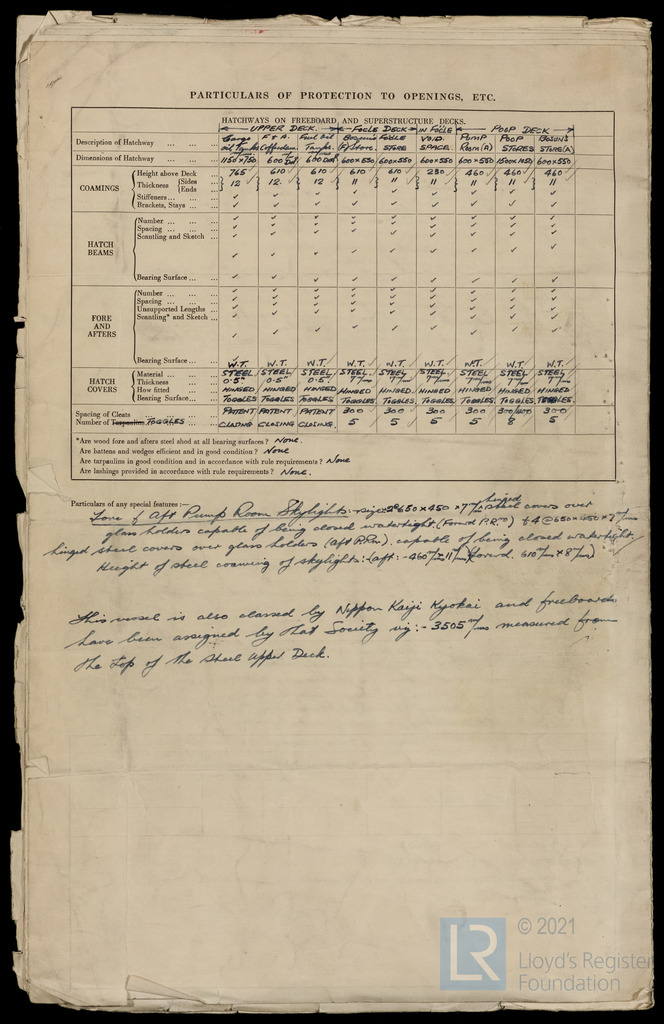 PARTICULARS OF PROTECTION TO OPENINGS, ETC.
HATCHWAYS ON FREEBOARD AND SUPERSTRUCTURE DECKS.
UPPER DECK. FOCLE DECK IN FOCLE POOP DECK
Description of Hatchway ... ... Cargo oil Tanks F & A. Cofferdam Fuel Oil Tanks. Bosun's (F) Store. FOCLE STORE VOID SPACE. PUMP ROOM (A) POOP STORES BOSUN'S STORE (A)
Dimensions of Hatchway ... ... 1150 x 750 600 600 600 x 550 600x550 600 x 550 600 x 550 600x550
COAMINGS
Height above Deck 765 610 610 610 610 230 460 460 460
Thickness Sides Ends 12 12 12 11 11 11 11 11 11
Stiffeners... ... ✓ ✓ ✓ ✓ ✓ ✓ ✓ ✓ ✓
Brackets, Stays ... ✓ ✓ ✓ ✓ ✓ ✓ ✓ ✓ ✓
HATCH BEAMS
Number ... ... ... ✓ ✓ ✓ ✓ ✓ ✓ ✓ ✓ ✓
Spacing ... ... ... ✓ ✓ ✓ ✓ ✓ ✓ ✓ ✓ ✓
Scantling and Sketch ... ✓ ✓ ✓ ✓ ✓ ✓ ✓ ✓ ✓
Bearing Surface ... ... ✓ ✓ ✓ ✓ ✓ ✓ ✓ ✓ ✓
FORE AND AFTERS
Number ... ... ... ✓ ✓ ✓ ✓ ✓ ✓ ✓ ✓ ✓
Spacing ... ... ... ✓ ✓ ✓ ✓ ✓ ✓ ✓ ✓ ✓
Unsupported Lengths ... ✓ ✓ ✓ ✓ ✓ ✓ ✓ ✓ ✓
Scantling* and Sketch ... ✓ ✓ ✓ ✓ ✓ ✓ ✓ ✓ ✓
Bearing Surface ... ✓ ✓ ✓ ✓ ✓ ✓ ✓ ✓ ✓
W.T. W.T. W.T. W.T. W.T. W.T. W.T. W.T. W.T.
HATCH COVERS
Material ... ... ... STEEL STEEL STEEL STEEL STEEL STEEL STEEL STEEL STEEL
Thickness ... ... 0.5" 0.5" 0.5" 7 m/m 7 m/m 7 m/m 7 m/m 7 m/m 7 m/m
How fitted ... ... HINGED HINGED HINGED HINGED HINGED HINGED HINGED HINGED HINGED
Bearing Surface... ... TOGGLES TOGGLES TOGGLES TOGGLES TOGGLES. TOGGLES TOGGLES TOGGLES TOGGLES.
Spacing of Cleats ... ... ... PATENT PATENT PATENT 300 300 300 300 300
Number of Tarpaulins TOGGLES ... CLOSING CLOSING CLOSING. 5 5 5 5 8 5
*Are wood fore and afters steel shod at all bearing surfaces? None.
Are battens and wedges efficient and in good condition? None
Are tarpaulins in good condition and in accordance with rule requirements? None
Are lashings provided in accordance with rule requirements? None.
Particulars of any special features :—
Fore & Aft Pump Room Skylights:- size 650 x 450 x 7 m/m hinged steel covers over
glass holders capable of being closed watertight (Forwd P.Rm) & 4 @ 650 x 450 x 7 m/m
hinged steel covers over glass holders (Aft P.Rm). capable of being closed watertight.
Height of steel coaming of skylights:- (aft: - 460 m/m x 11 m/m) (forwd. 610 m/m x 8 m/m)
This vessel is also classed by Nippon Kaiji Kyokai and freeboards
have been assigned by that Society viz:- 3505 m/ms measured from
the top of the steel Upper Deck.
LR
© 2021
Lloyd's Register
Foundation